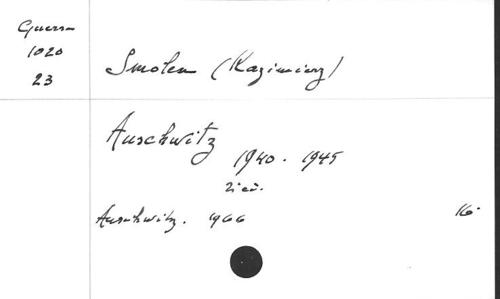 Guerra
1020
23
Smolen (Kazimierz)
Auschwitz
1940 - 1945
2i ed.
Auschwitz. 1966
16.